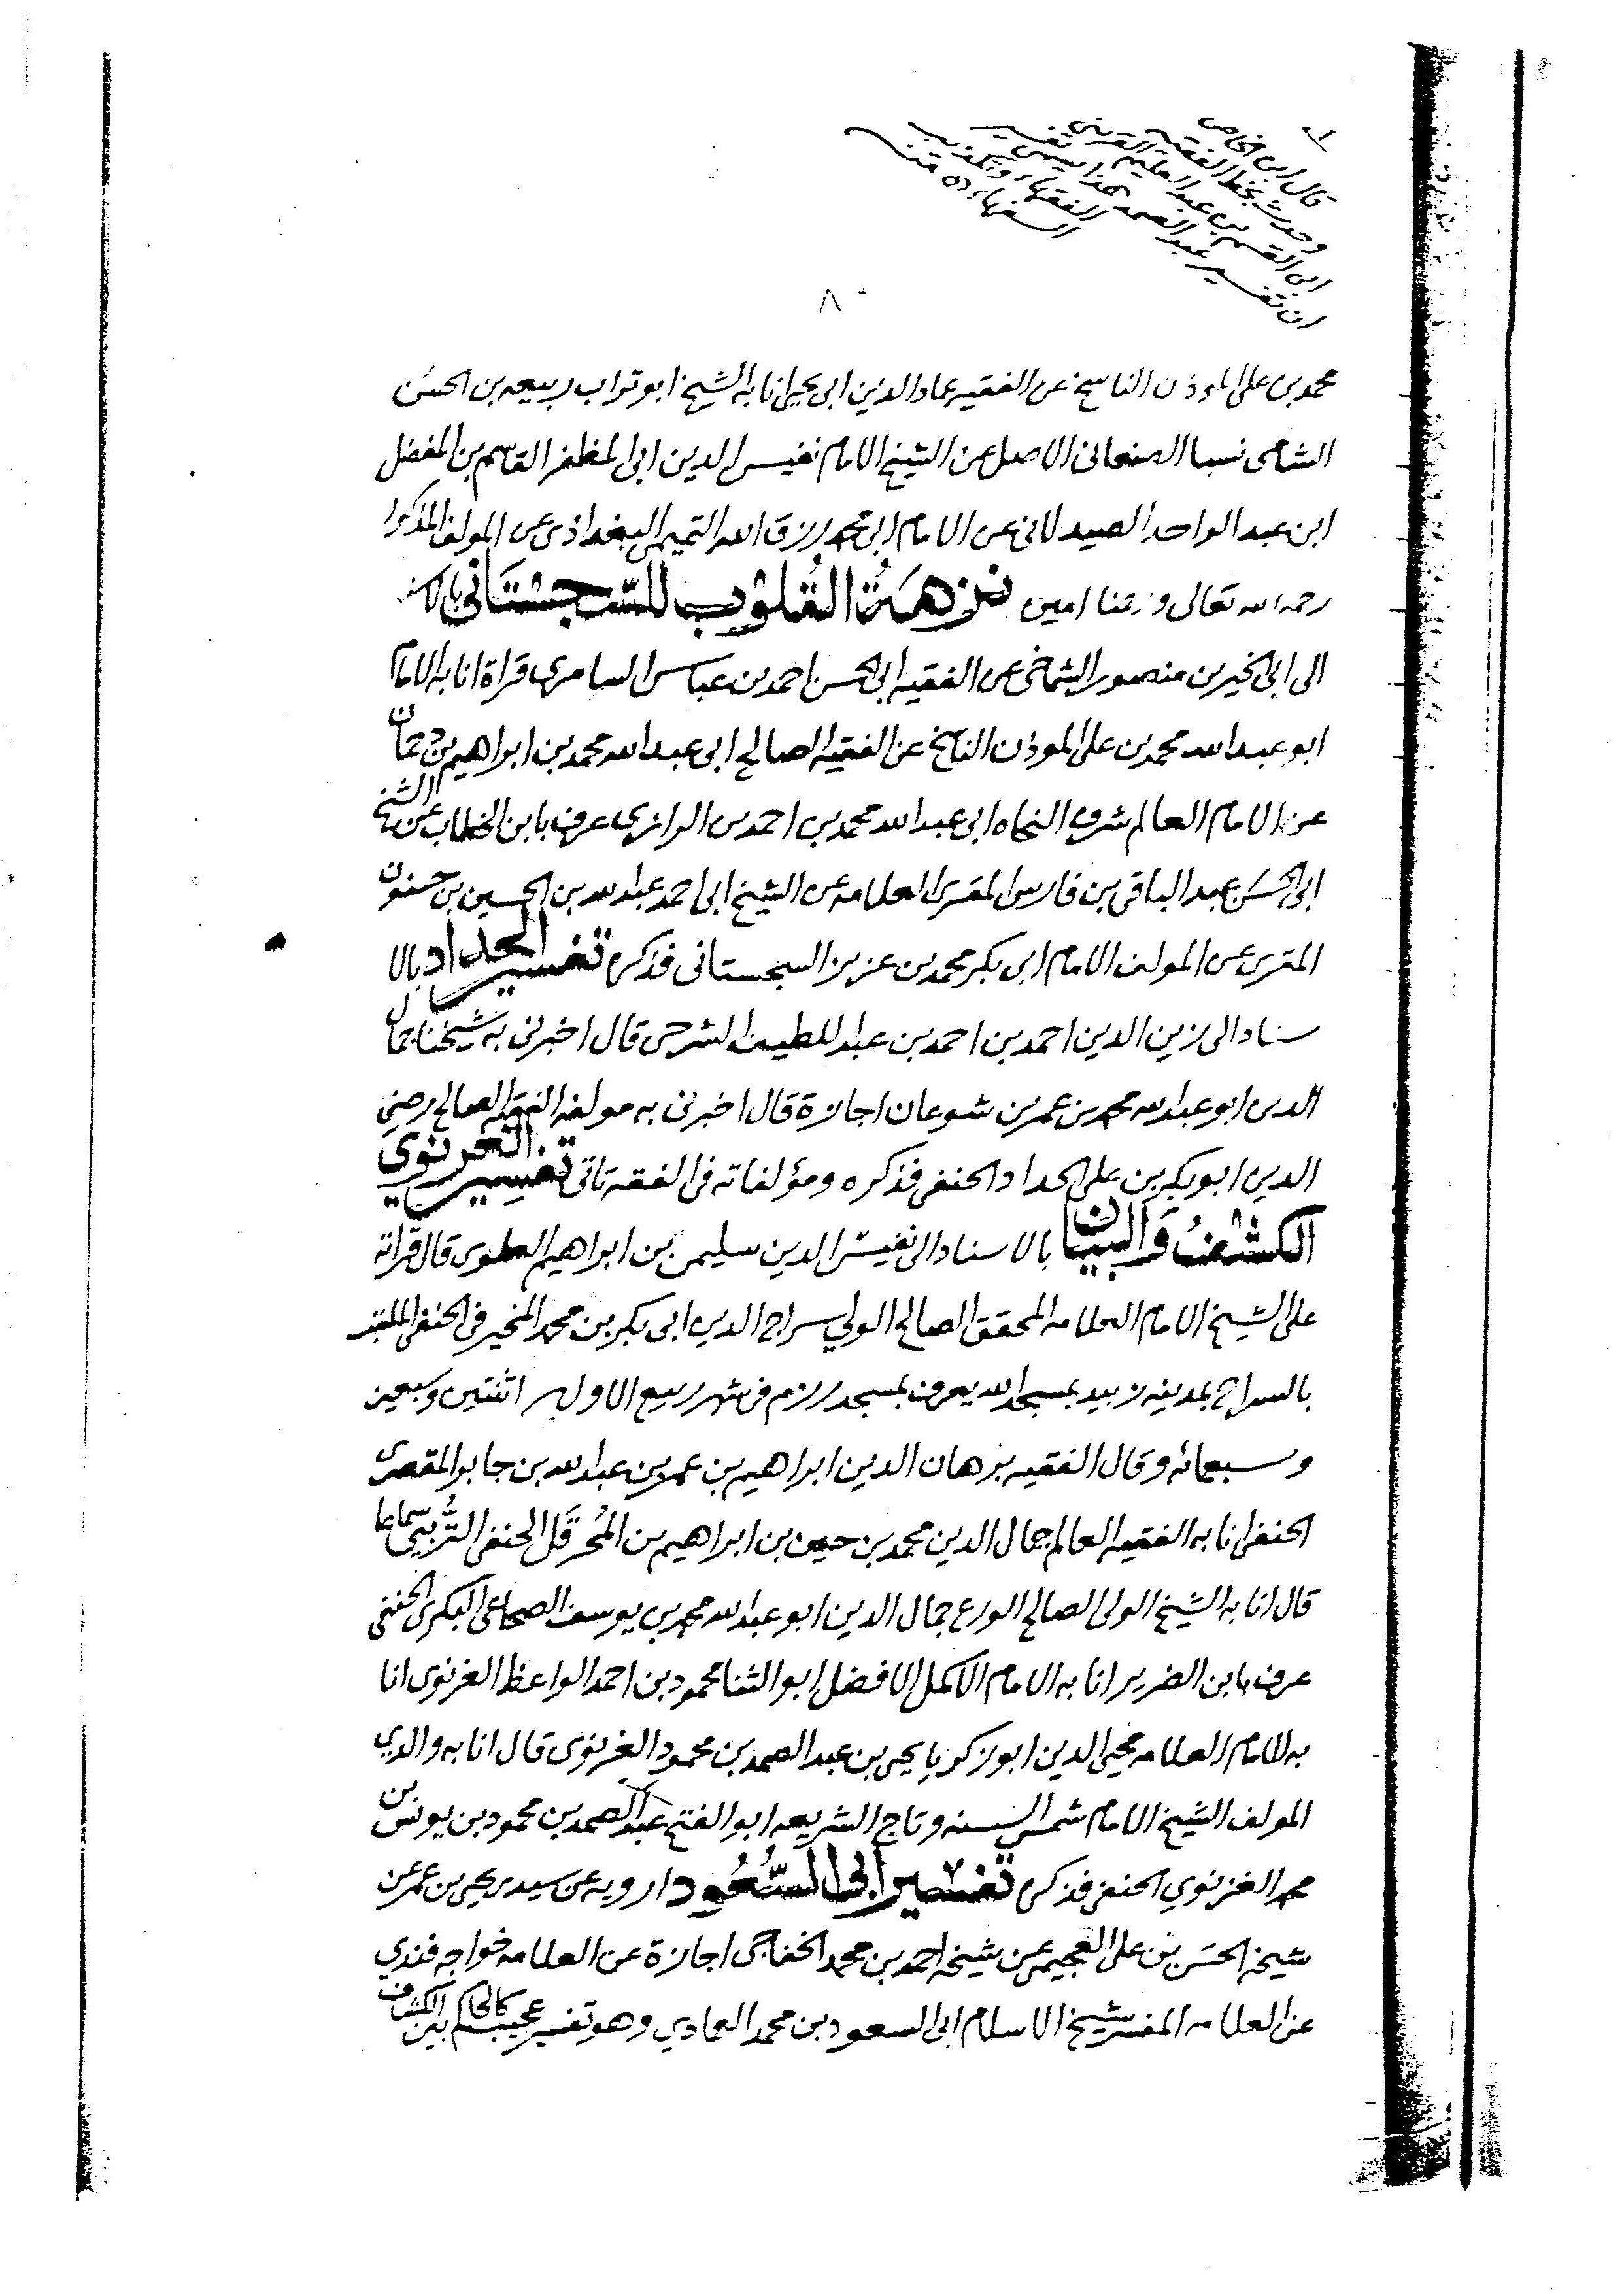 قال ابن الخاص
وجدت بخط الفقيه
ابى القسم بن عبد العليم القربتى
ان تفسير عبد الصمد هذا يسمى تفسير
الفقهاء وتكذيب
السفهاء
٨٠
محمد بن على الموذن الناسخ عن الفقيه عماد الدين ابى يحيى انا به الشيخ ابو تراب ربيعه بن الحسن
الشامى نسبا الصنعانى الاصل عن الشيخ الامام نفيس الدين ابى المظفر القاسم بن المفضل
ابن عبد الواحد الصيدلانى عن الامام ابى محمد رزق الله التميمى البغداذى عن المولف المذكور
رحمه الله تعالى امين نزهة القلوب للسجستانى بالاسنا
الى ابى الخير بن منصور الشماخى عن الفقيه ابى الحسن احمد بن عباس السامرى قراة انا به الامام
ابو عبد الله محمد بن على الموذن الناسخ عن الفقيه الصالح ابى عبد الله محمد بن ابراهيم بن دحمان
عن الامام العالم شرف النحاه ابى عبد الله محمد بن احمد بن الرازى عرف بابن الخطاب عن الشيخ
ابى الحسن عبد الباقى بن فارس المقرى العلامه عن الشيخ ابى احمد عبد الله بن الحسين بن حسنون
المقرى عن المولف الامام ابى بكر محمد بن عزيز السجستانى فذكره تفسير الحداد بالا
سناد الى زين الدين احمد بن احمد بن عبد اللطيف الشرجى قال اخبرنى به شيخنا جمال
الدين ابو عبد الله محمد بن عمر بن شوعان اجازة قال اخبرنى به مولفه الفقيه الصالح رضى
الدين ابو بكر بن على الحداد الحنفى فذكره ومؤلفاته فى الفقه تاتى تفسير الغزنوي
الكشف والبيان بالاسناد الى نفيس الدين سليمن بن ابراهيم العلوى قال قراته
على الشيخ الامام العلامه المحقق الصالح الولي سراج الدين ابى بكر بن محمد المخيرفى الحنفى الملقب
بالسراج بمدينه زبيد بمسجد الله يعرف بمسجد رزم فى شهر ربيع الاول اثنتين وسبعين
وسبعمائه وقال الفقيه برهان الدين ابراهيم بن عمر بن عبد الله بن جابر المقصرى
الحنفى انا به الفقيه العالم جمال الدين محمد بن حسن بن ابراهيم بن المُحرقَل الحنفى التُّربيى سماعا
قال انا به الشيخ الولى الصالح الورع جمال الدين ابو عبد الله محمد بن يوسف الصجاعى البكرى الحنفى
عرف بابن الضرير انا به الامام الاكمل الافضل ابو الثنا محمود بن احمد الواعظ الغزنوى انا
به الامام العلامه محيى الدين ابو زكريا يحيى بن عبد الصمد بن محمود الغزنوى قال انا به والدي
المولف الشيخ الامام شمس السنه وتاج الشريعه ابو الفتح عبد الصمد بن محمود بن يونس بن
محمد الغزنوي الحنفى فذكره تفسير ابى السُّعُود ارويه عن سيدي يحيى بن عمر عن
شيخه الحسَن بن على العجيمى عن شيخه احمد بن محمد الخفاجى اجازة عن العلامه خواجه فندي
عن العلامه المفسر شيخ الاسلام ابى السعود بن محمد العمادي وهو تفسير عجيب كالحاكم بين الكشاف